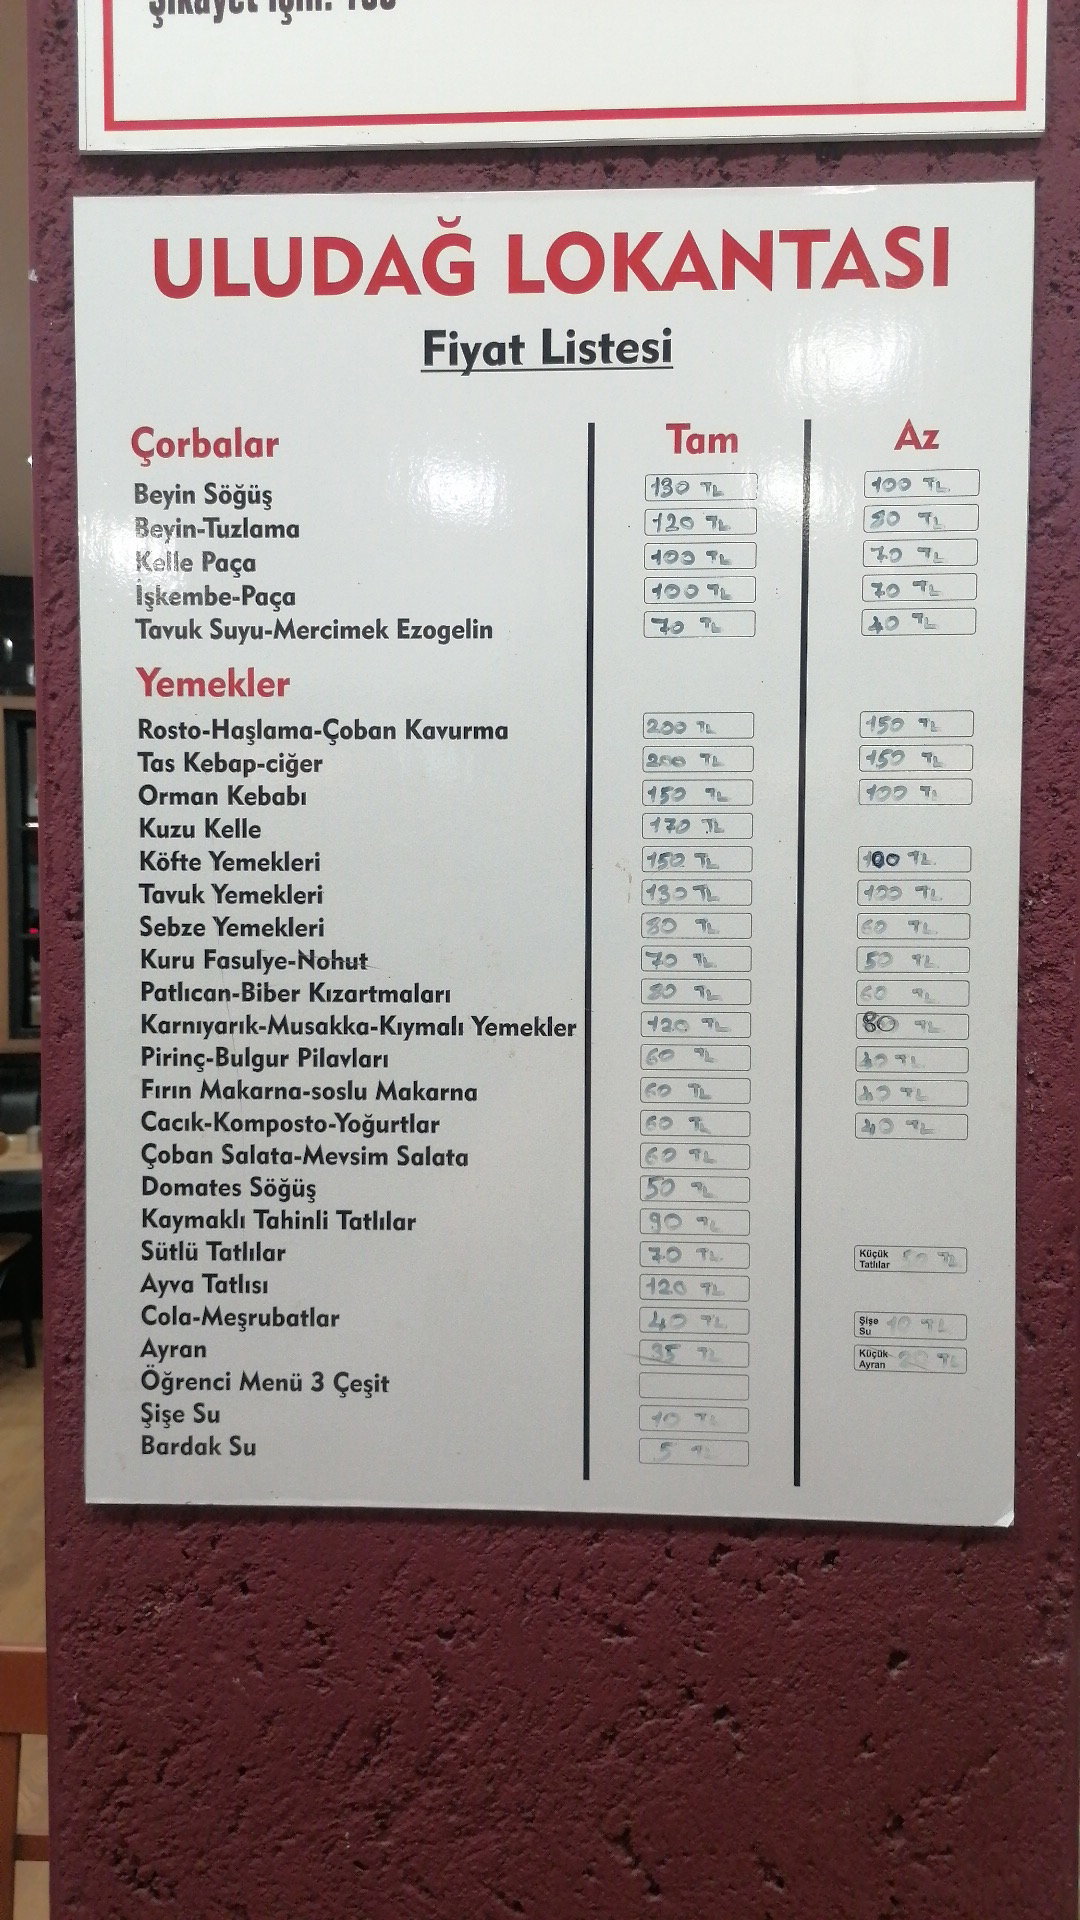 ULUDAĞ LOKANTASI
Fiyat Listesi
Çorbalar Tam Az
Beyin Söğüş 130 TL 100 TL
Beyin-Tuzlama 120 TL 80 TL
Kelle Paça 100 TL 70 TL
İşkembe-Paça 100 TL 70 TL
Tavuk Suyu-Mercimek Ezogelin 70 TL 40 TL
Yemekler
Rosto-Haşlama-Çoban Kavurma 200 TL 150 TL
Tas Kebap-ciğer 200 TL 150 TL
Orman Kebabı 150 TL 100 TL
Kuzu Kelle 170 TL
Köfte Yemekleri 150 TL 100 TL
Tavuk Yemekleri 130 TL 100 TL
Sebze Yemekleri 80 TL 60 TL
Kuru Fasulye-Nohut 70 TL 50 TL
Patlıcan-Biber Kızartmaları 80 TL 60 TL
Karnıyarık-Musakka-Kıymalı Yemekler 120 TL 80 TL
Pirinç-Bulgur Pilavları 60 TL 40 TL
Fırın Makarna-soslu Makarna 60 TL 40 TL
Cacık-Komposto-Yoğurtlar 60 TL 40 TL
Çoban Salata-Mevsim Salata 60 TL
Domates Söğüş 50 TL
Kaymaklı Tahinli Tatlılar 90 TL
Sütlü Tatlılar 70 TL Küçük Tatlılar TL
Ayva Tatlısı 120 TL
Cola-Meşrubatlar 40 TL Şişe Su 10 TL
Ayran 35 TL Küçük Ayran TL
Öğrenci Menü 3 Çeşit
Şişe Su 10 TL
Bardak Su 5 TL